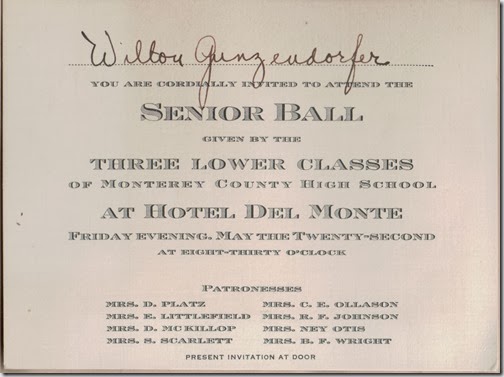 Wilton Gunzendorfer
YOU ARE CORDIALLY INVITED TO ATTEND THE
SENIOR BALL
GIVEN BY THE
THREE LOWER CLASSES
OF MONTEREY COUNTY HIGH SCHOOL
AT HOTEL DEL MONTE
FRIDAY EVENING, MAY THE TWENTY-SECOND
AT EIGHT-THIRTY O'CLOCK
PATRONESSES
MRS. D. PLATZ MRS. C. E. OLLASON
MRS. E. LITTLEFIELD MRS. R. F. JOHNSON
MRS. D. MCKILLOP MRS. NEY OTIS
MRS. S. SCARLETT MRS. B. F. WRIGHT
PRESENT INVITATION AT DOOR